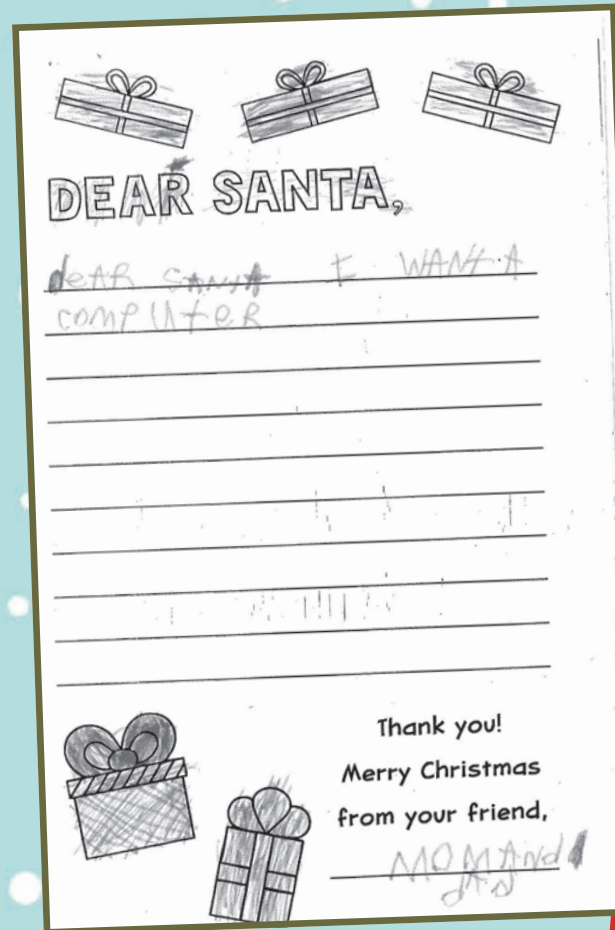 DEAR SANTA,
dEAR SANtA I WANt A
computeR
Thank you!
Merry Christmas
from your friend,
MOM ANd
dAd